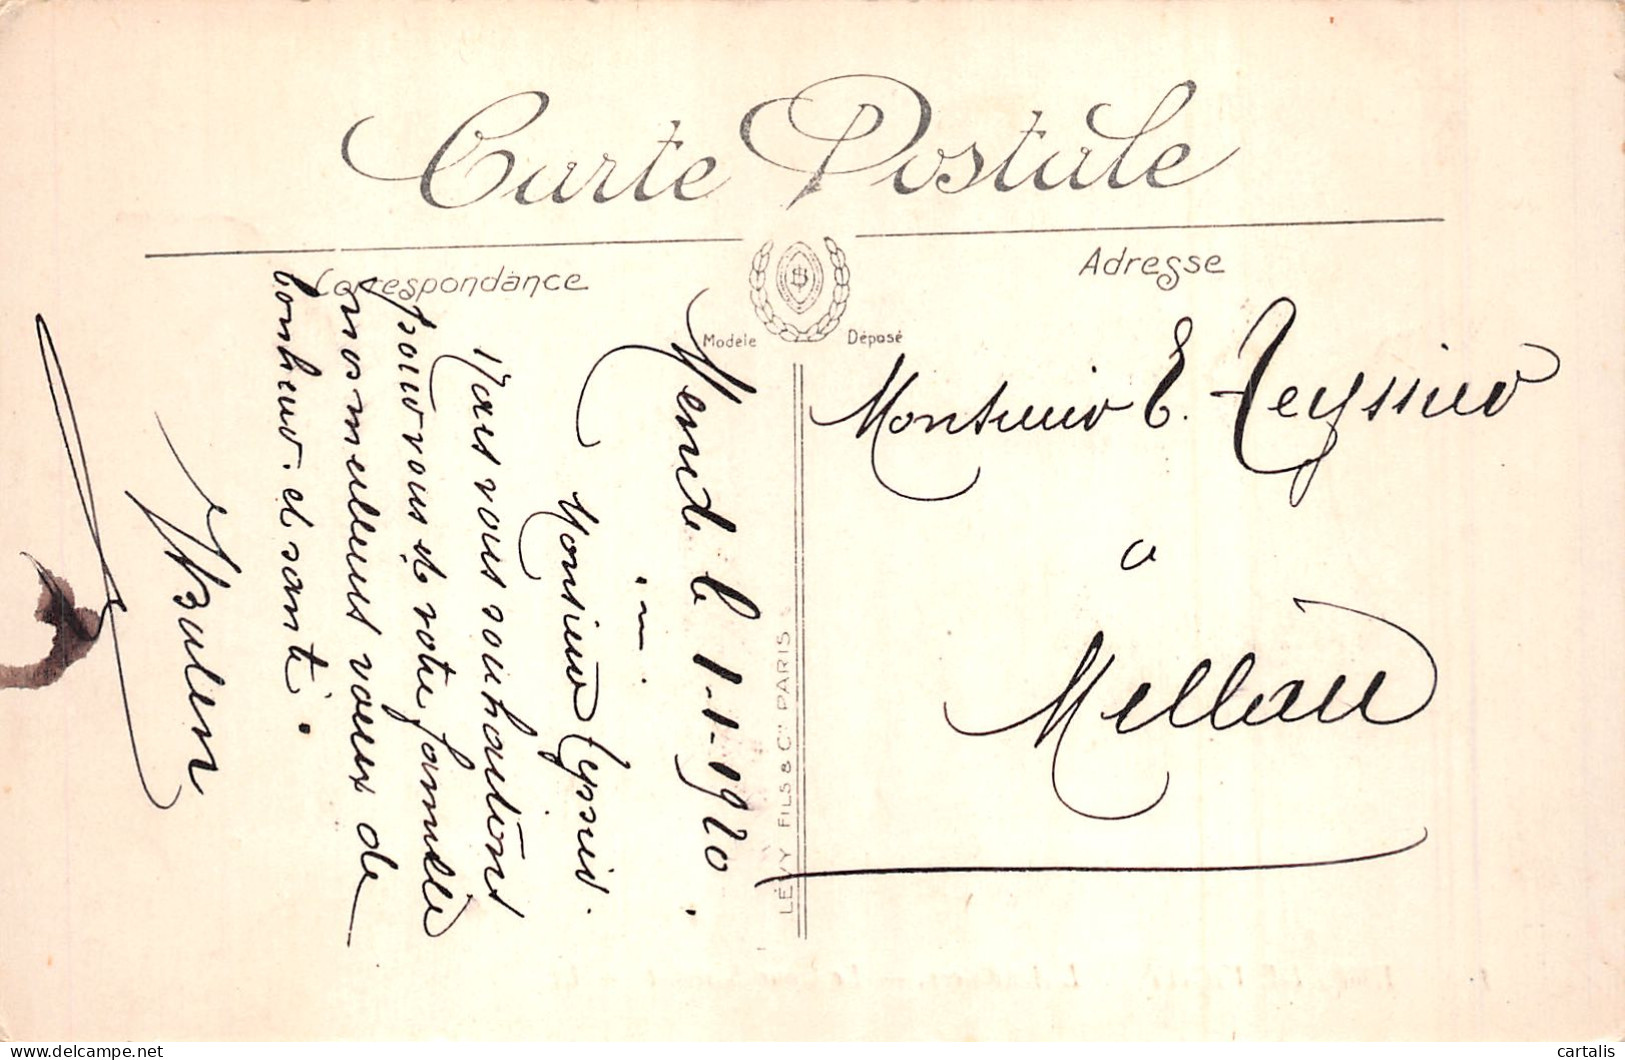 Carte Postale
Correspondance
Adresse
Modèle
Déposé
Mende le 1-1-1920.
Monsieur Teyssier.
Nous vous souhaitons
pour vous et votre famille
nos meilleurs voeux de
bonheur et santé.
Monsieur E. Teyssier
a
Millau
LÉVY FILS & Cie PARIS
cartalis